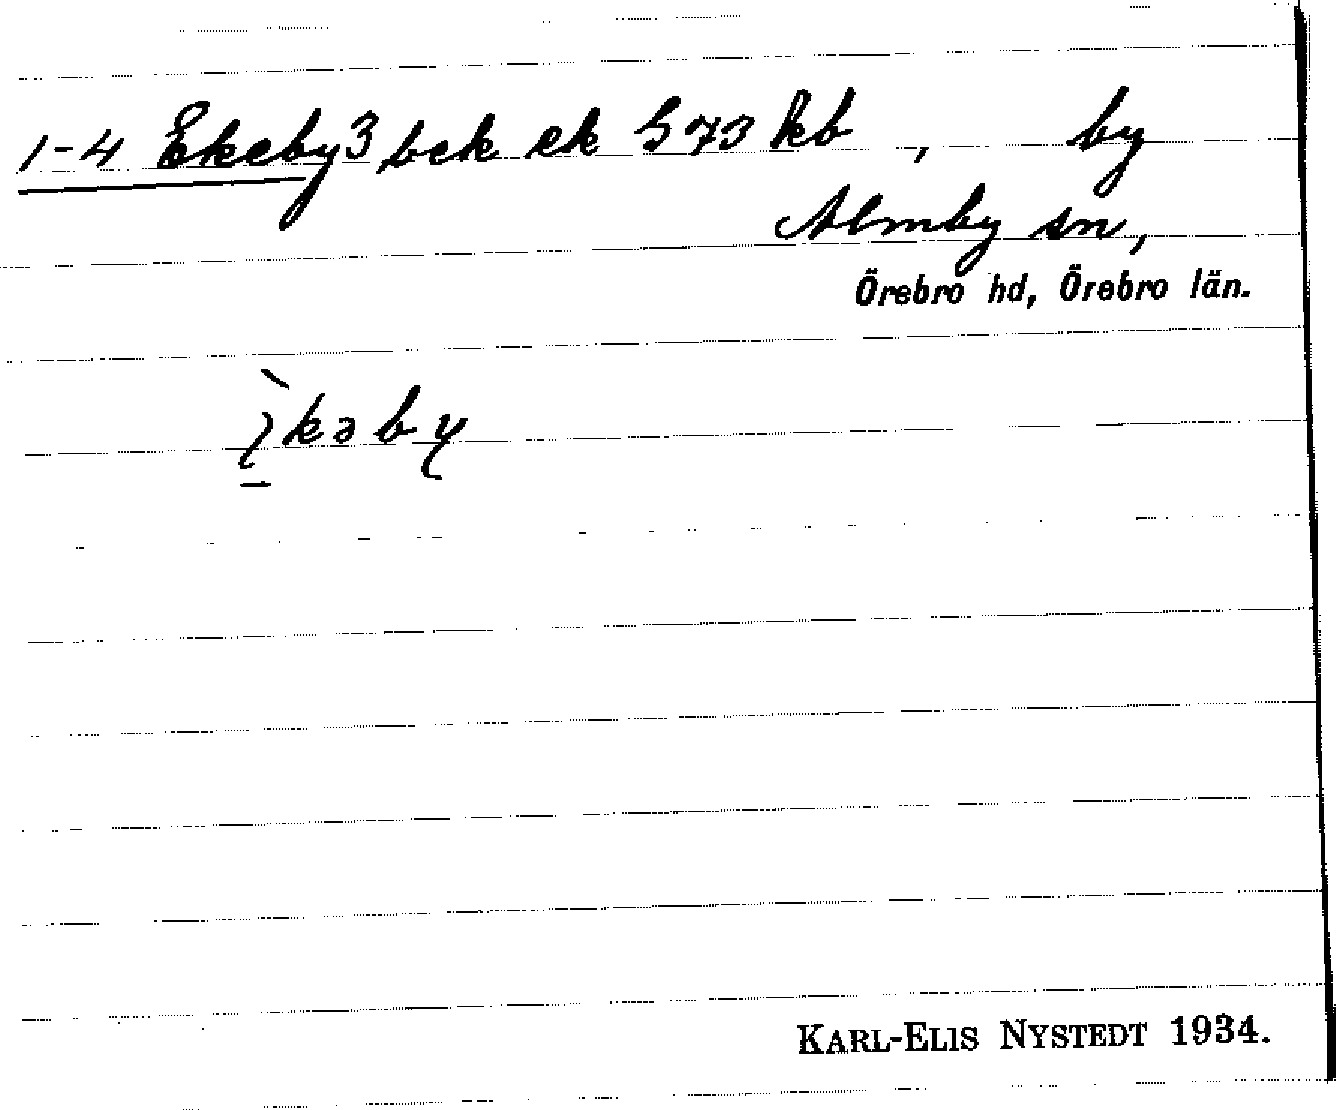 1-4 Ekeby 3 bek ek 573 kb , by
Almby sn,
Örebro hd, Örebro län.
KARL-ELIS NYSTEDT 1934.